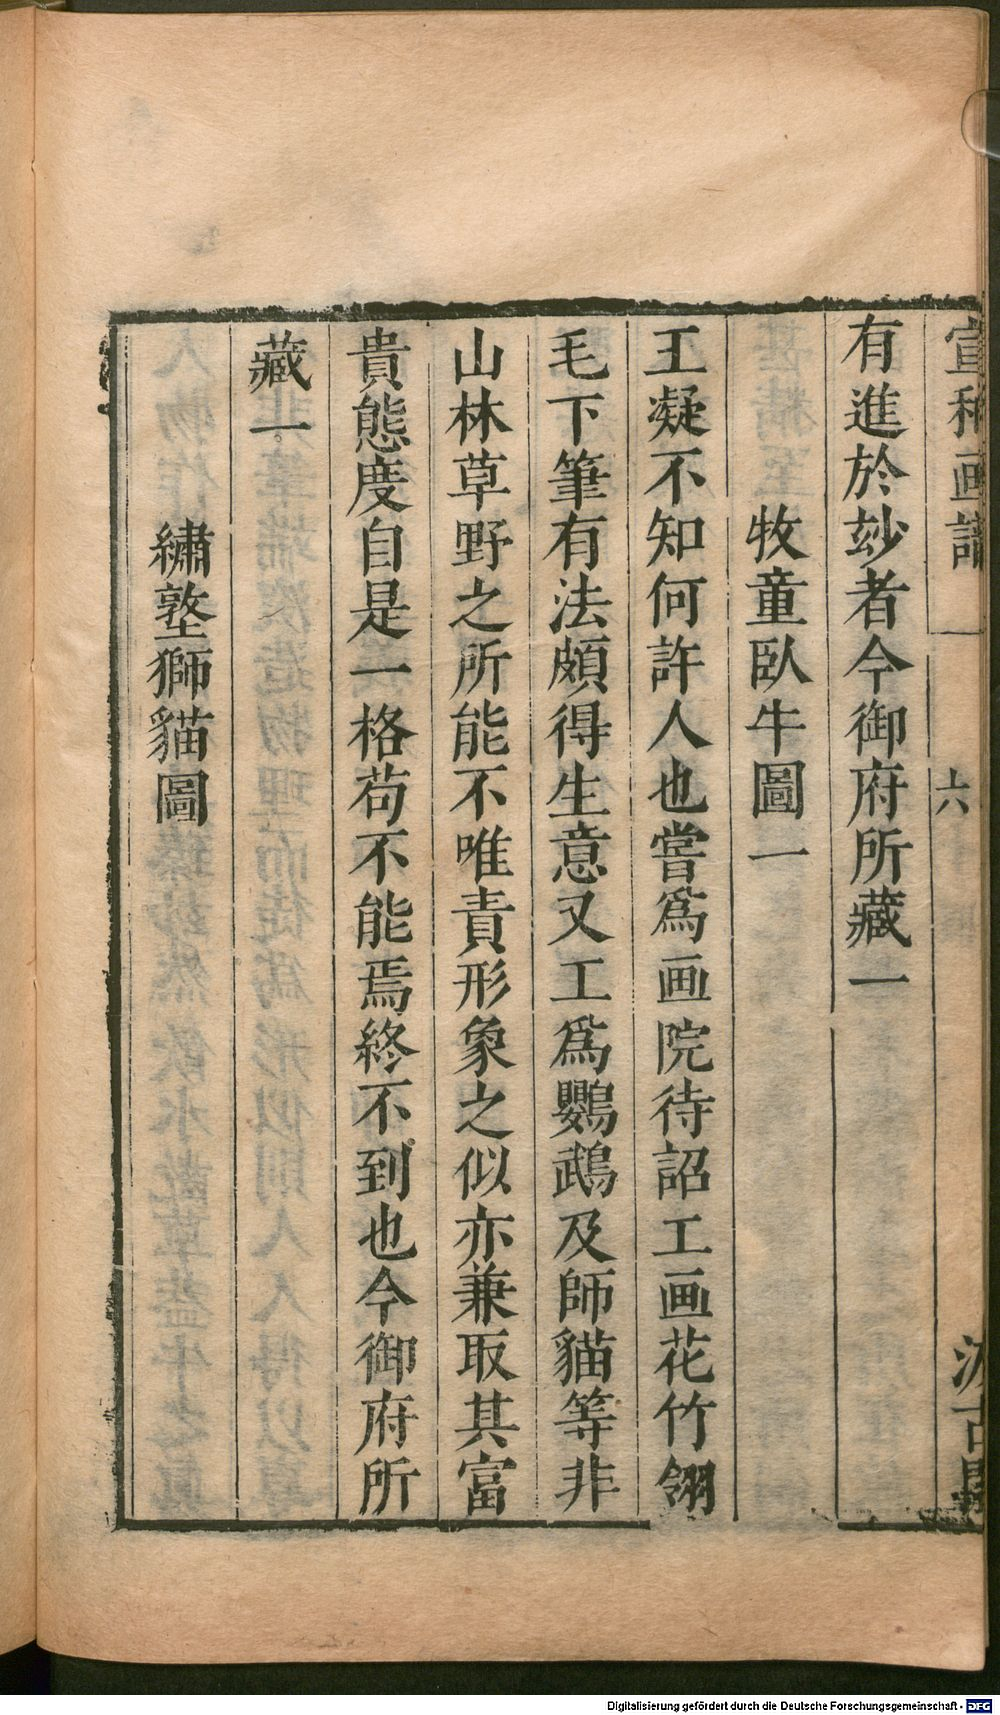 宣和画譜 六 汲古閣
有進於玅者今御府所藏一
牧童臥牛圖一
王凝不知何許人也嘗爲画院待詔工画花竹翎
毛下筆有法頗得生意又工爲鸚鵡及師貓等非
山林草野之所能不唯責形象之似亦兼取其富
貴態度自是一格苟不能焉終不到也今御府所
藏一
繡墪獅貓圖
Digitalisierung gefördert durch die Deutsche Forschungsgemeinschaft - DFG